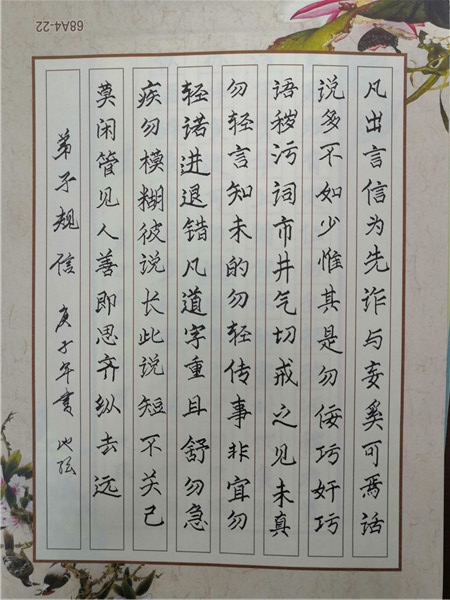 凡出言信为先诈与妄奚可焉话
说多不如少惟其是勿佞巧奸巧
语秽污词市井气切戒之见未真
勿轻言知未的勿轻传事非宜勿
轻诺进退错凡道字重且舒勿急
疾勿模糊彼说长此说短不关己
莫闲管见人善即思齐纵去远
弟子规信 庚子年書
68A4-22